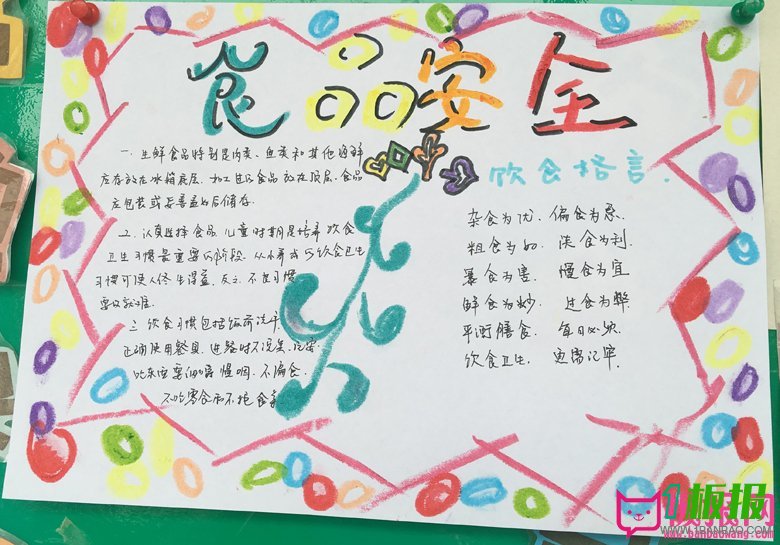 食品安全
一、生鲜食品特别是肉类、鱼类和其他海鲜
应存放在冰箱底层，加工过食品放在顶层，食品
应包装或妥善盖好后储存。
二、认真选择食品，儿童时期是培养饮食
卫生习惯最重要的阶段，从小养成
习惯可使人终生得益，反之，不良习惯
要改就难。
三、饮食习惯包括饭前洗手，
正确使用餐具，进餐时不说笑，
吃东西要细嚼慢咽，不偏食，
不吃零食和不挑食等
饮食格言
杂食为优，偏食为忌
粗食为好，淡食为利
暴食为害，慢食为宜
鲜食为妙，过食为弊
平衡膳食，每日必须
饮食卫生，更需记牢
板报网
www.banbaowang.com
1板报
WWW.1BANBAO.COM